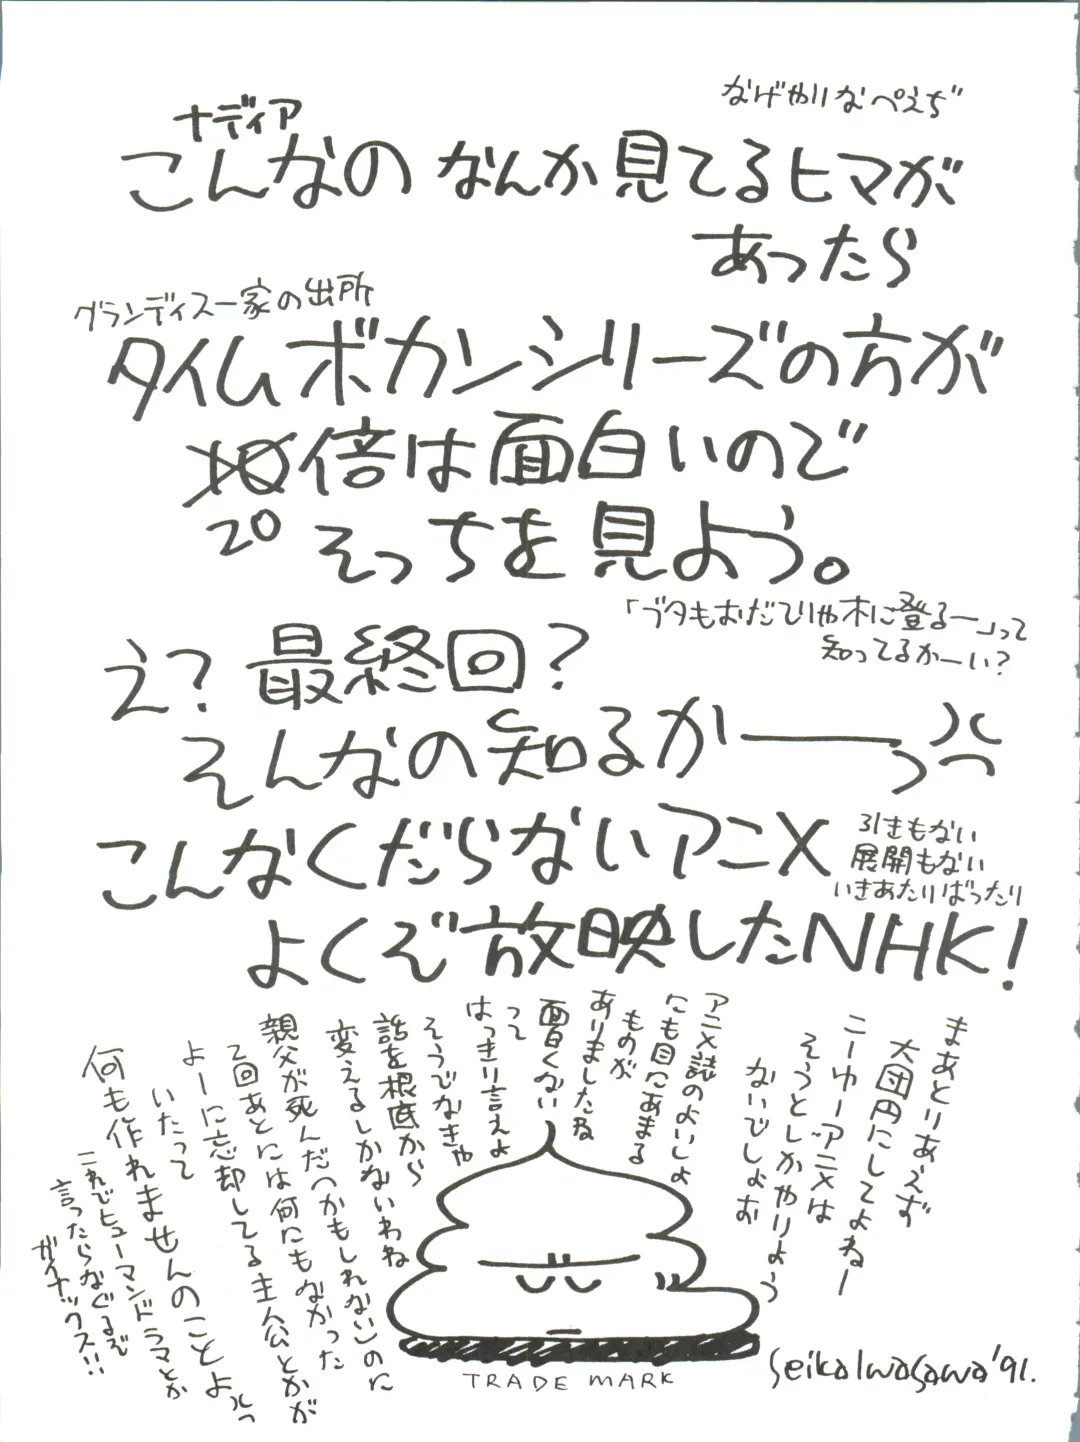 なげやりなぺえぢ
ナディア
こんなのなんか見てるヒマが
あったら
グランディス一家の出所
タイムボカンシリーズの方が
10倍は面白いので
20
そっちを見よう。
「ブタもおだてりゃ木に登るー」って
知ってるかーい?
え?最終回?
そんなの知るかーーっ
こんなくだらないアニメ
引きもない
展開もない
いきあたりばったり
よくぞ放映したNHK!
まあとりあえず
大団円にしてよねー
こーゆーアニメは
そうとしかやりよう
ないでしょお
アニメ誌のよいしょ
にも目にあまる
ものが
ありましたね
面白くない
って
はっきり言えよ
そうでなきゃ
話を根底から
変えるしかないわね
親父が死んだ(かもしれない)のに
2回あとには何にもなかった
よーに忘却してる主人公とかが
いたって
何も作れませんのことよっ
これでヒューマンドラマとか
言ったらなぐるぞ
ガイナックス!!
TRADE MARK
Seika Iwasawa '91.